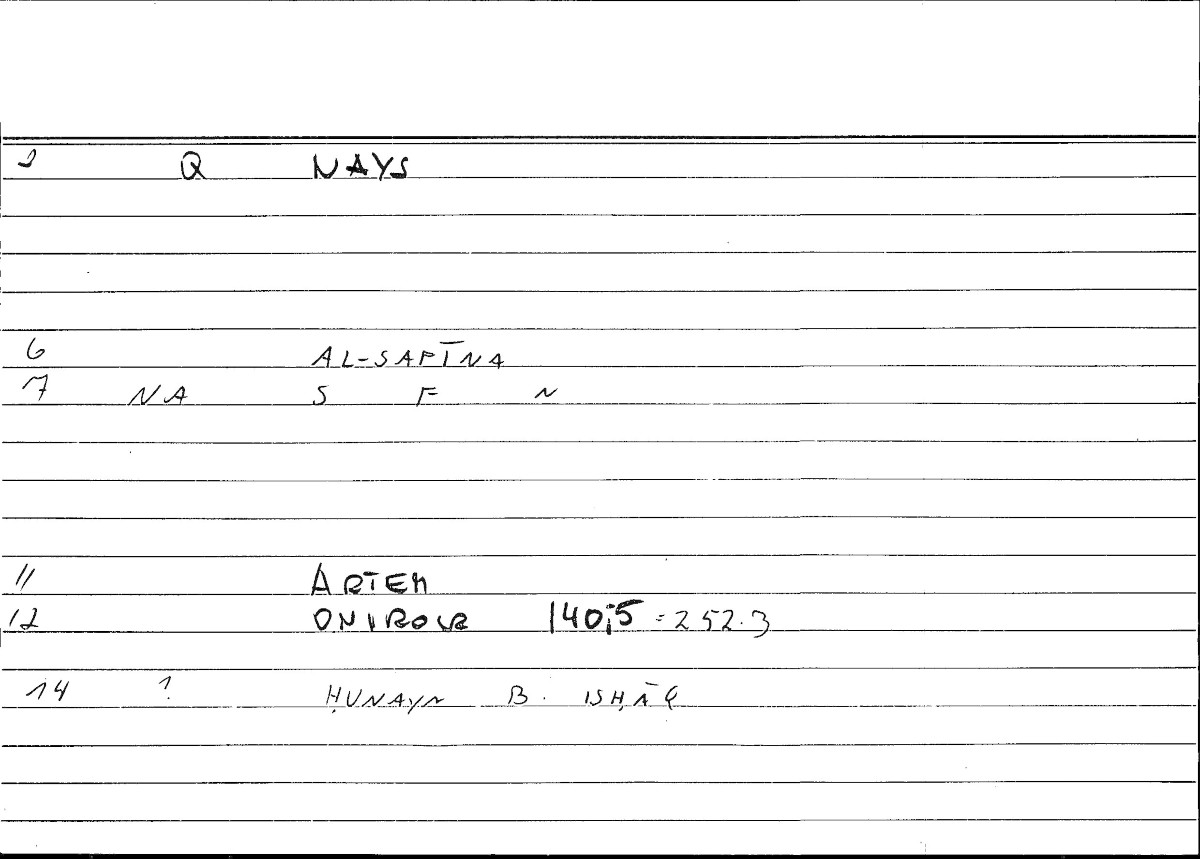 2 Q NAYS
6 AL-SAFĪNA
7 NA S F N
11 ARTEM
12 ONIROCR 140;5 = 252.3
14 ? ḤUNAYN B. ISḤĀQ